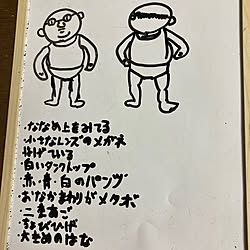 ・ななめ上をみてる
・小さなレンズのメガネ
・はげている
・白いタンクトップ
・赤・青・白のパンツ
・おなかまわりがメタボ
・二重あご
・ちょびひげ
・大きめのはな